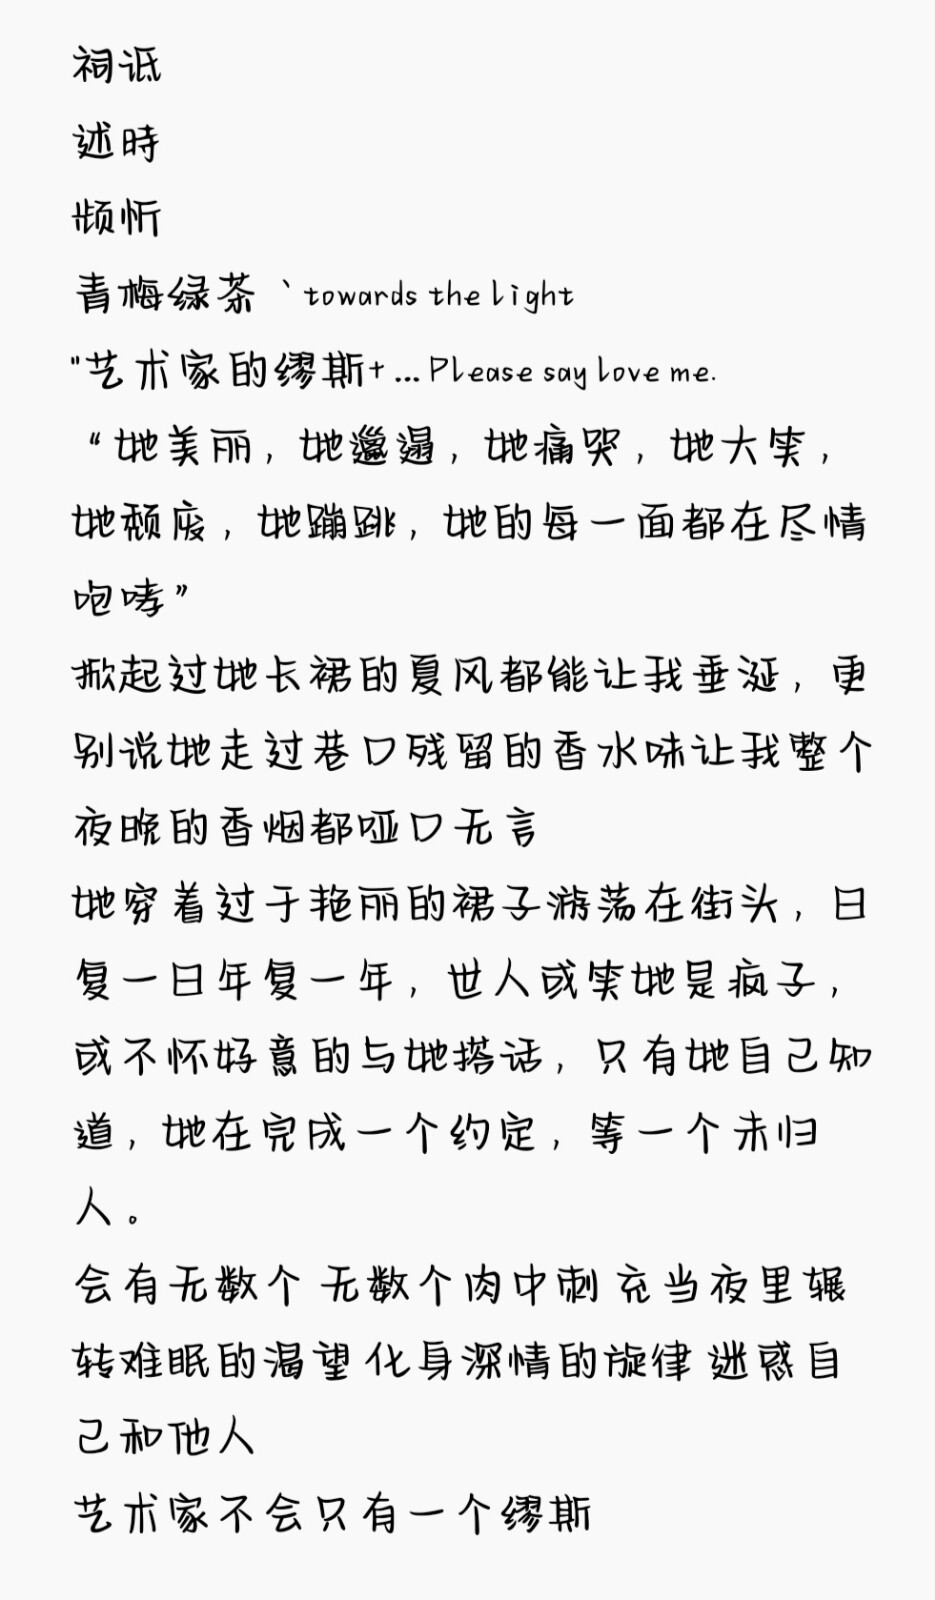 祠诋
述時
频忻
青梅绿茶 ˋtowards the light
"艺术家的缪斯+ ... Please say love me.
“她美丽，她邋遢，她痛哭，她大笑，
她颓废，她蹦跳，她的每一面都在尽情
咆哮”
掀起过她长裙的夏风都能让我垂涎，更
别说她走过巷口残留的香水味让我整个
夜晚的香烟都哑口无言
她穿着过于艳丽的裙子游荡在街头，日
复一日年复一年，世人或笑她是疯子，
或不怀好意的与她搭话，只有她自己知
道，她在完成一个约定，等一个未归
人。
会有无数个 无数个肉中刺 充当夜里辗
转难眠的渴望 化身深情的旋律 迷惑自
己和他人
艺术家不会只有一个缪斯